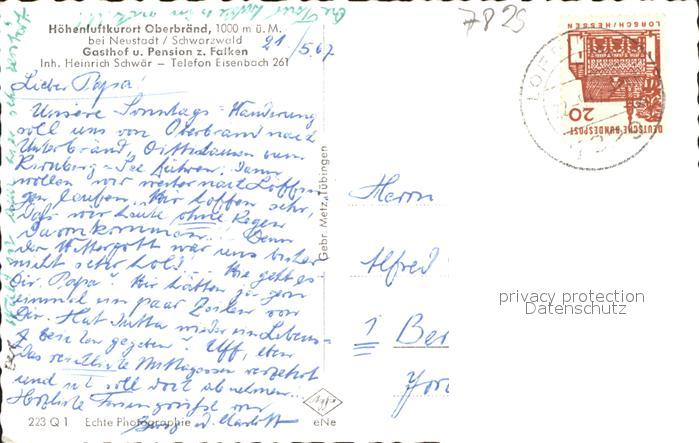 Höhenluftkurort Oberbränd, 1000 m ü. M.
bei Neustadt / Schwarzwald
Gasthof u. Pension z. Falken
Inh. Heinrich Schwär — Telefon Eisenbach 261
21/5.67
7829
Lieber Papa!
Unsere Sonntags-Wanderung
soll uns von Oberbrand nach
Unterbränd, Dittishausen zum
Kirnberg-See führen. Dann
wollen wir weiter nach Löffin-
gen laufen. Wir hoffen sehr,
daß wir heute ohne Regen
davonkommen! Denn
der Wettergott war uns bisher
nicht sehr hold! Wie geht es
Dir, Papa? Wir hätten zu gern
einmal ein paar Zeilen von
Dir. Hat Jutta wieder ein Lebens-
gegeben? Uff, eben
das Mittagessen verzehrt
und soll dort abnehmen..
Herzliche Feriengrüße von
u.
223 Q 1 Echte Photographie
Agfa
eNe
Gebr. Metz, Tübingen
LORSCH/HESSEN
20
DEUTSCHE BUNDESPOST
Herrn
Alfred
1 Ber
privacy protection
Datenschutz